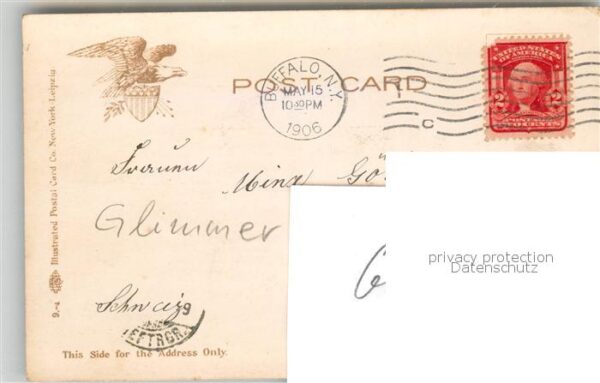 POST CARD
BUFFALO, N.Y.
MAY 15
10 PM
1906
C
UNITED STATES
OF AMERICA
2 2
POSTAGE
TWO CENTS
Illustrated Postal Card Co. New York-Leipzig
9.-4
Mina Gö
Glimmer
6
privacy protection
Datenschutz
Schweiz
This Side for the Address Only.